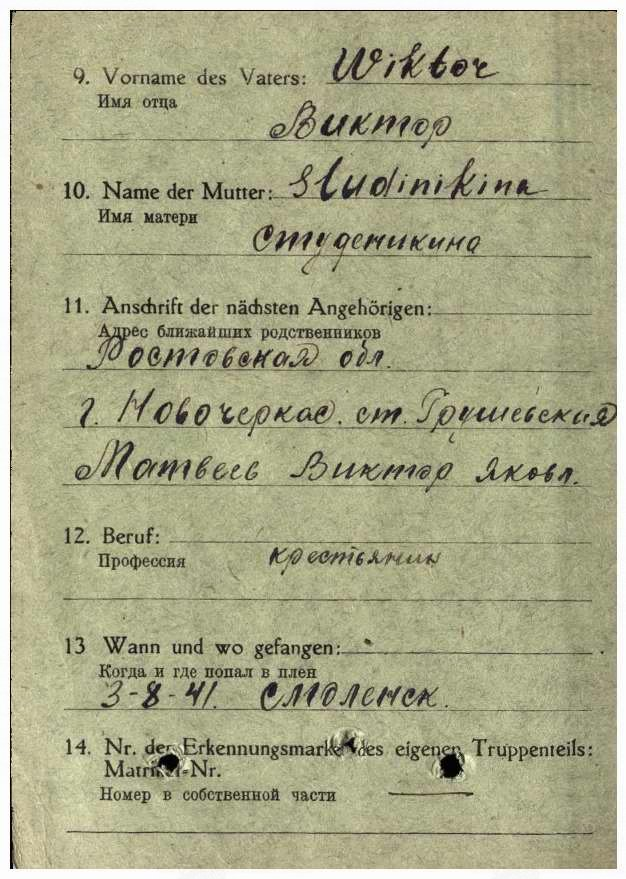 9. Vorname des Vaters: Wiktor
Имя отца
Виктор
10. Name der Mutter: Studinikina
Имя матери
Студеникина
11. Anschrift der nächsten Angehörigen:
Адрес ближайших родственников
Ростовская обл.
г. Новочеркас. ст. Грушевская
Матвеев Виктор Яковл.
12. Beruf:
Профессия крестьянин
13 Wann und wo gefangen:
Когда и где попал в плен
3-8-41. Смоленск.
14. Nr. der Erkennungsmarke des eigenen Truppenteils:
Matrikel-Nr.
Номер в собственной части